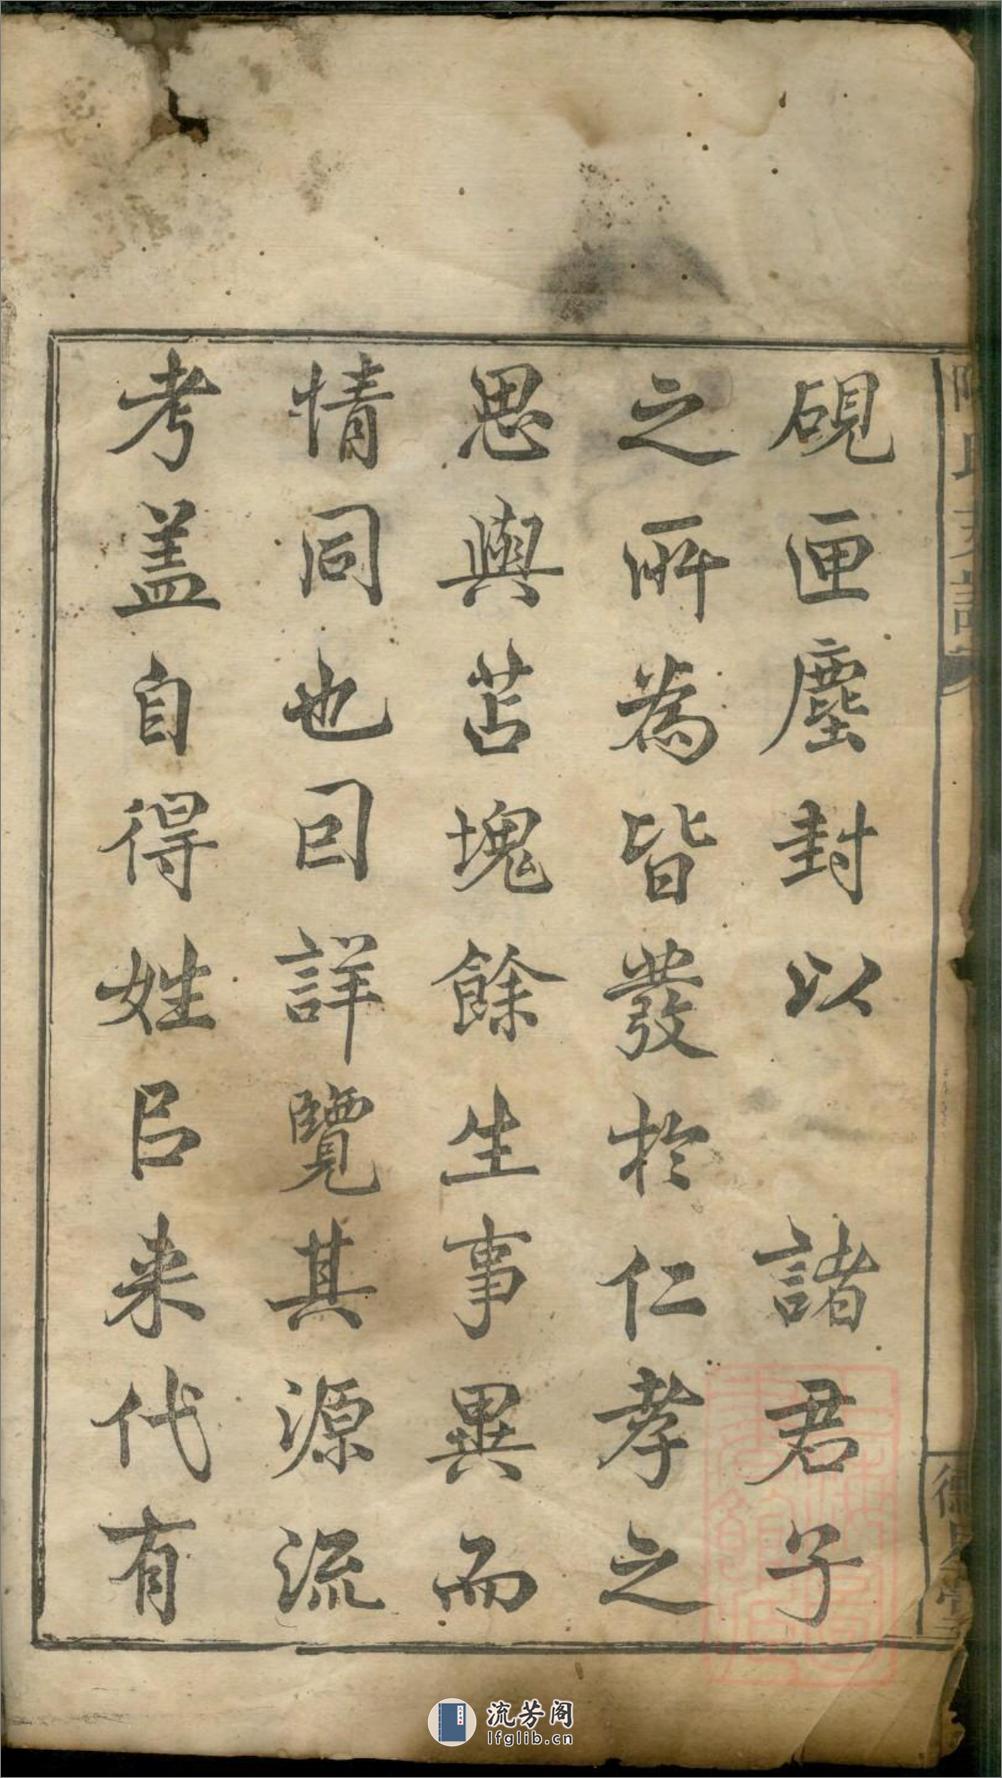 硯匣塵封以　諸君子
之所為皆發於仁孝之
思與苫塊餘生事異而
情同也囙詳覽其源流
考盖自得姓㠯来代有
流芳阁
lfglib.cn